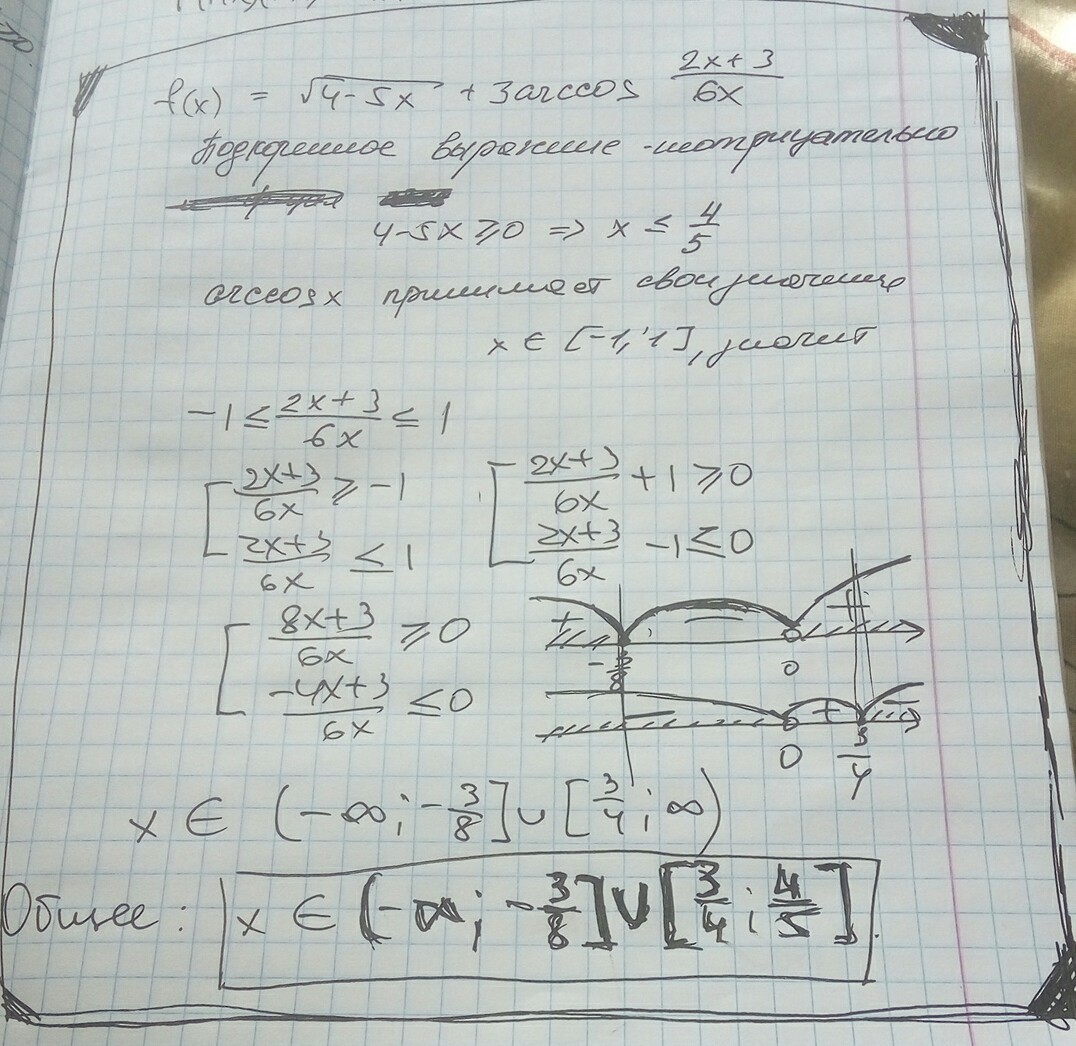 f(x) = √4-5x + 3arccos (2x+3)/(6x)
Подкоренное выражение - неотрицательно
4-5x ≥ 0 => x ≤ 4/5
arccosx принимает свои значение
x ∈ [-1; 1], значит
-1 ≤ (2x+3)/(6x) ≤ 1
[ (2x+3)/(6x) ≥ -1 [ (2x+3)/(6x) +1 ≥ 0
(2x+3)/(6x) ≤ 1 (2x+3)/(6x) -1 ≤ 0
[ (8x+3)/(6x) ≥ 0 + − +
-3/8 0
(-4x+3)/(6x) ≤ 0 − +
0 3/4
x ∈ (-∞; -3/8] ∪ [3/4; ∞)
Общее: x ∈ (-∞; -3/8] ∪ [3/4; 4/5]